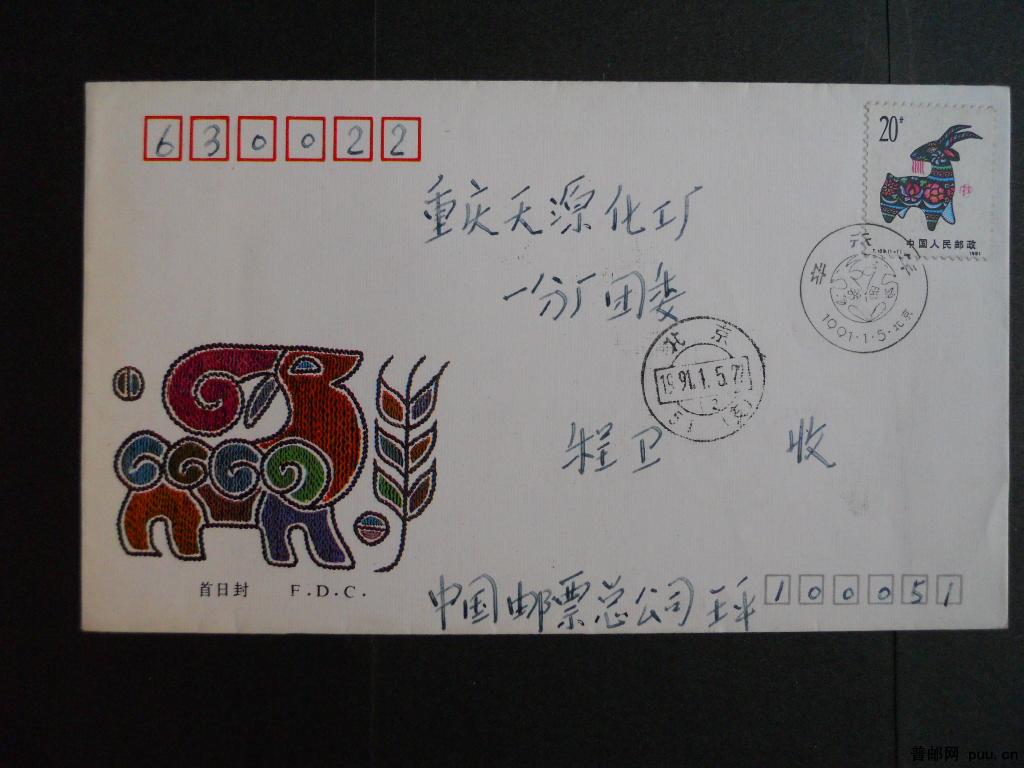 630022
20分
中国人民邮政
T.159.(1-1)
1991
重庆天源化工厂
一分厂团委
辛未
1991.1.5.北京
北京
1991.1.5.7
51 (支)
程卫 收
首日封 F.D.C.
中国邮票总公司 王平
100051
普邮网 puu.cn